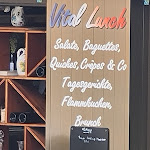 Vital Lunch
Salate, Baguettes,
Quiches, Crêpes & Co
Tagesgerichte,
Flammkuchen,
Brunch